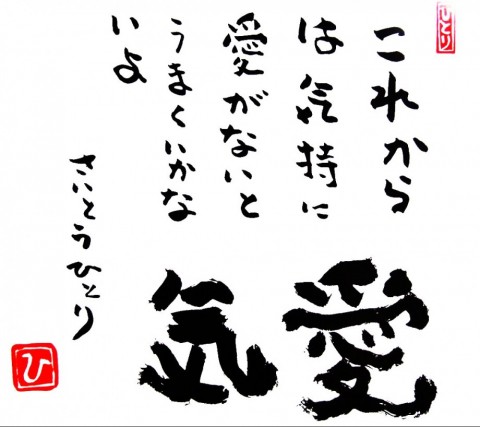 ひとり
これから
は気持に
愛がないと
うまくいかな
いよ
愛
気
さいとうひとり
ひ